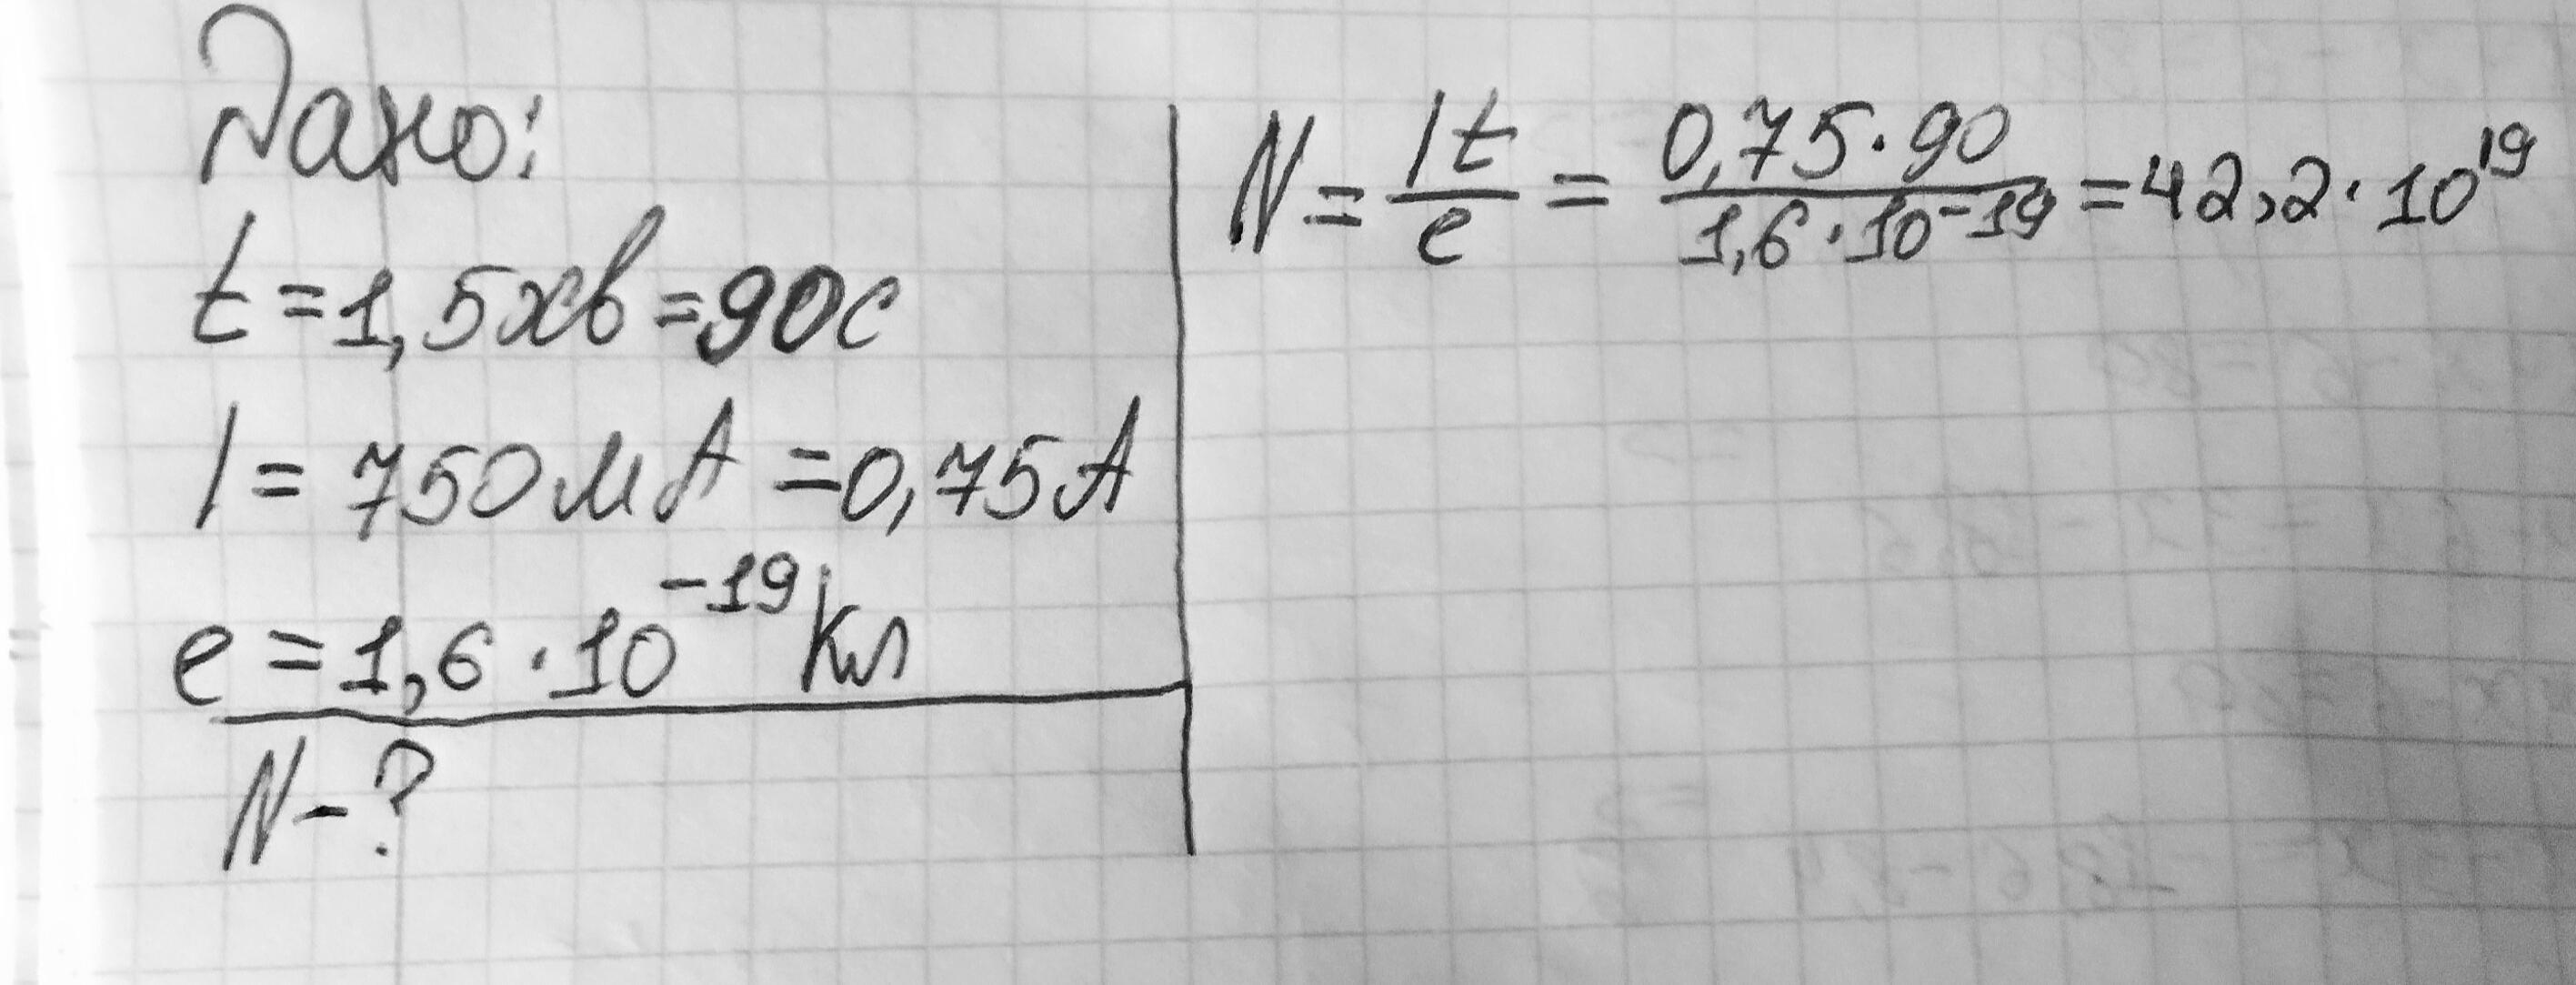 Дано:
t = 1,5хв = 90с
I = 750 мА = 0,75А
e = 1,6 · 10⁻¹⁹ Кл
N - ?
N = It/e = 0,75 · 90 / 1,6 · 10⁻¹⁹ = 42,2 · 10¹⁹